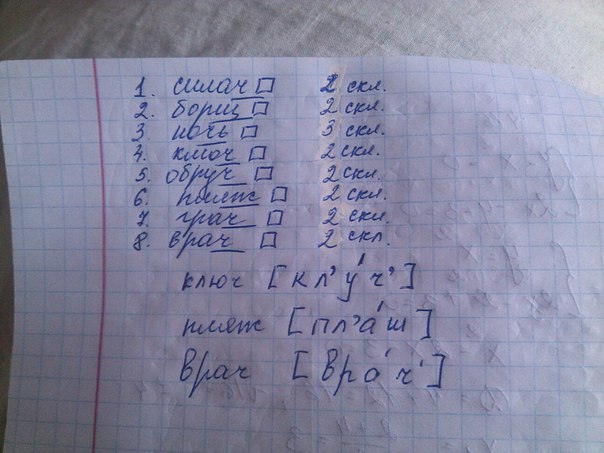 1. силач □ 2 скл.
2. борщ □ 2 скл.
3. ночь □ 3 скл.
4. ключ □ 2 скл.
5. обруч □ 2 скл.
6. пляж □ 2 скл.
7. грач □ 2 скл.
8. врач □ 2 скл.
ключ [кл’у́ч’]
пляж [пл’а́ш]
Врач [вра́ч’]